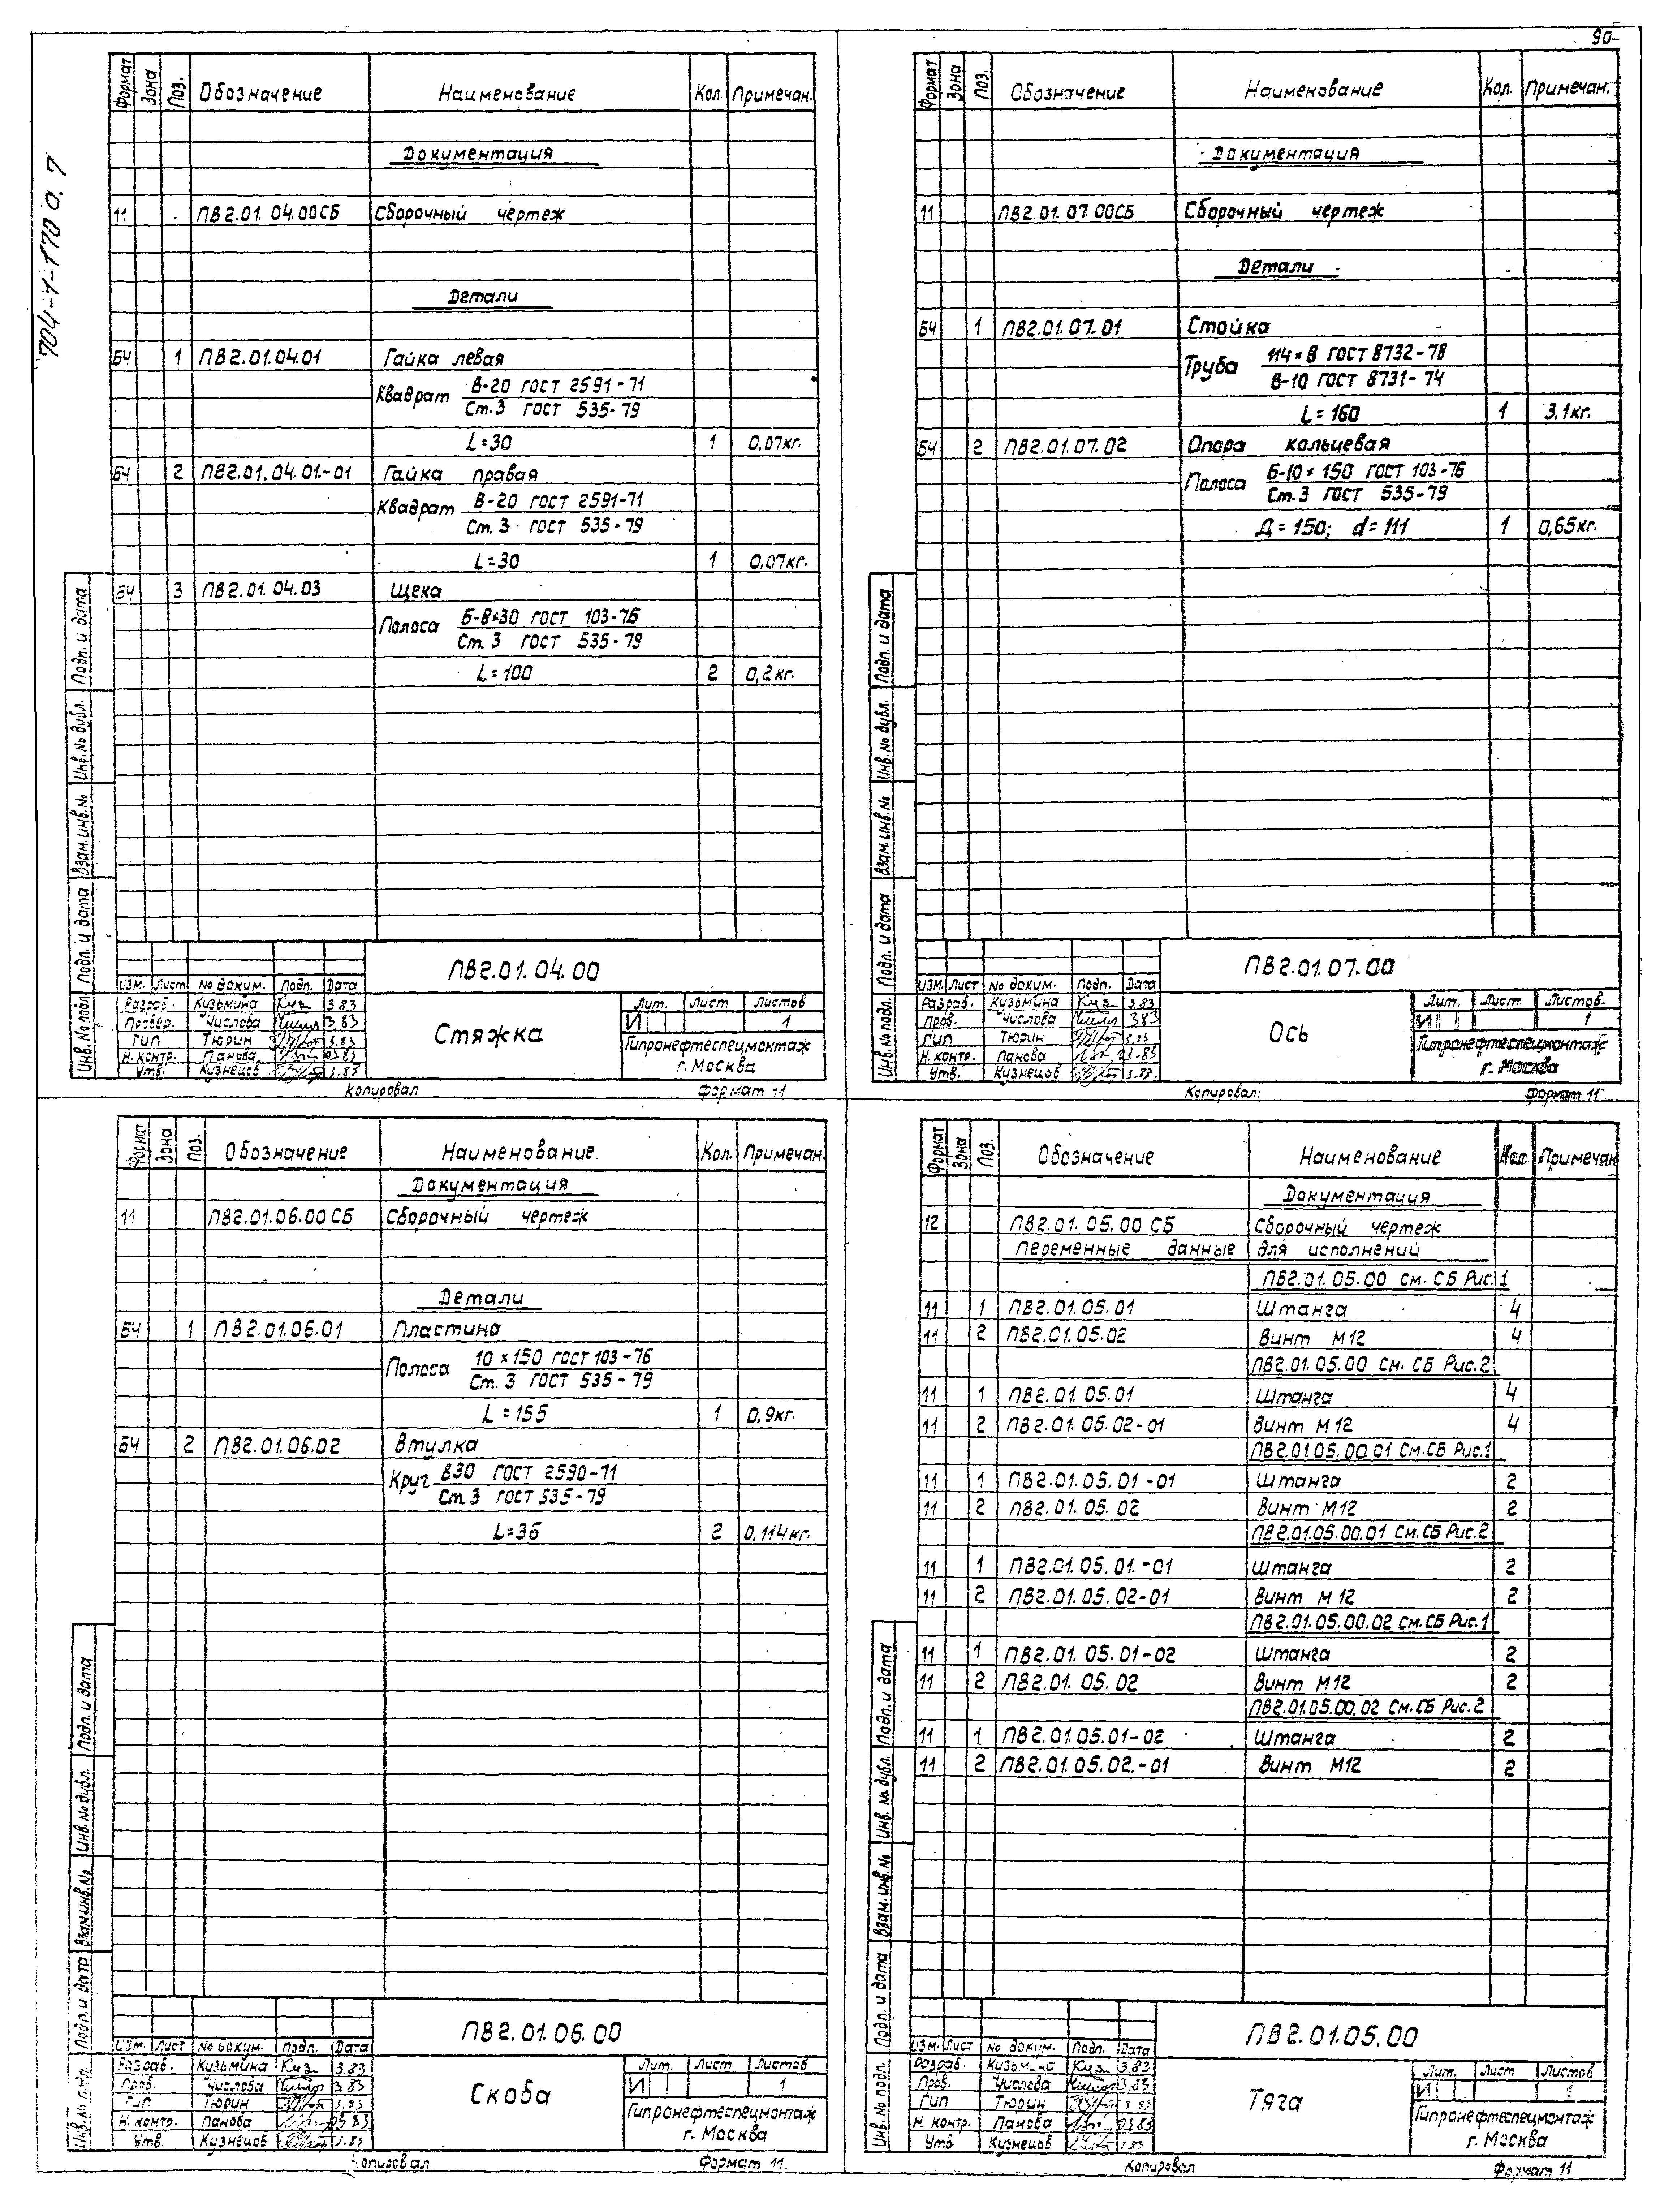 90
704-1-170 α. 7
Формат Зона Поз. Обозначение Наименование Кол. Примечан.
Документация
11 ПВ2.01.04.00СБ Сборочный чертеж
Детали
БЧ 1 ПВ2.01.04.01 Гайка левая
Квадрат В-20 ГОСТ 2591-71
Ст.3 ГОСТ 535-79
L=30 1 0,07кг.
БЧ 2 ПВ2.01.04.01-01 Гайка правая
Квадрат В-20 ГОСТ 2591-71
Ст.3 ГОСТ 535-79
L=30 1 0,07кг.
БЧ 3 ПВ2.01.04.03 Щека
Полоса Б-8×30 ГОСТ 103-76
Ст.3 ГОСТ 535-79
L=100 2 0,2кг.
Инв.№подл. Подп. и дата Взам.инв.№ Инв.№дубл. Подп. и дата
ПВ2.01.04.00
Изм. Лист № докум. Подп. Дата
Разраб. Кузьмина 3.83
Провер. Числова 3.83
Гип Тюрин 3.83
Н.контр. Панова 03.83
Утв. Кузнецов 3.83
Стяжка
Лит. Лист Листов
И 1
Гипронефтеспецмонтаж
г.Москва
Копировал Формат 11
Формат Зона Поз. Обозначение Наименование Кол. Примечан.
Документация
11 ПВ2.01.07.00СБ Сборочный чертеж
Детали
БЧ 1 ПВ2.01.07.01 Стойка
Труба 114×8 ГОСТ 8732-78
В-10 ГОСТ 8731-74
L=160 1 3,1кг.
БЧ 2 ПВ2.01.07.02 Опора кольцевая
Полоса Б-10×150 ГОСТ 103-76
Ст.3 ГОСТ 535-79
Д=150; d=111 1 0,65кг.
Инв.№подл. Подп. и дата Взам.инв.№ Инв.№дубл. Подп. и дата
ПВ2.01.07.00
Изм. Лист № докум. Подп. Дата
Разраб. Кузьмина 3.83
Пров. Числова 3.83
Гип Тюрин 3.83
Н.контр. Панова 03.83
Утв. Кузнецов 3.83.
Ось
Лит. Лист Листов
И 1
Гипронефтеспецмонтаж
г. Москва
Копировал: Формат 11
Формат Зона Поз. Обозначение Наименование Кол. Примечан.
Документация
11 ПВ2.01.06.00СБ Сборочный чертеж
Детали
БЧ 1 ПВ2.01.06.01 Пластина
Полоса 10×150 ГОСТ 103-76
Ст.3 ГОСТ 535-79
L=155 1 0,9кг.
БЧ 2 ПВ2.01.06.02 Втулка
Круг В30 ГОСТ 2590-71
Ст.3 ГОСТ 535-79
L=36 2 0,114кг.
Подп. и дата Взам.инв.№ Инв.№дубл. Подп. и дата
ПВ2.01.06.00
Изм. Лист № докум. Подп. Дата
Разраб. Кузьмина 3.83
Пров. Числова 3.83
Гип Тюрин 3.83
Н.контр. Панова 03.83
Утв. Кузнецов 3.83
Скоба
Лит. Лист Листов
И 1
Гипронефтеспецмонтаж
г. Москва
Копировал Формат 11.
Формат Зона Поз. Обозначение Наименование Кол. Примечан
Документация
12 ПВ2.01.05.00 СБ Сборочный чертеж
Переменные данные для исполнений
ПВ2.01.05.00 см. СБ Рис.1
11 1 ПВ2.01.05.01 Штанга 4
11 2 ПВ2.01.05.02 Винт М12 4
ПВ2.01.05.00 См. СБ Рис.2
11 1 ПВ2.01.05.01 Штанга 4
11 2 ПВ2.01.05.02-01 Винт М12 4
ПВ2.01.05.00.01 См.СБ Рис.1
11 1 ПВ2.01.05.01-01 Штанга 2
11 2 ПВ2.01.05.02 Винт М12 2
ПВ2.01.05.00.01 См.СБ Рис.2
11 1 ПВ2.01.05.01.-01 Штанга 2
11 2 ПВ2.01.05.02-01 Винт М12 2
ПВ2.01.05.00.02 См.СБ Рис.1
11 1 ПВ2.01.05.01-02 Штанга 2
11 2 ПВ2.01.05.02 Винт М12 2
ПВ2.01.05.00.02 См.СБ Рис.2
11 1 ПВ2.01.05.01-02 Штанга 2
11 2 ПВ2.01.05.02.-01 Винт М12 2
Инв.№ подл. Подп. и дата Взам.инв.№ Инв.№дубл. Подп. и дата
ПВ2.01.05.00
Изм. Лист № докум. Подп. Дата
Разраб. Кузьмина 3.83
Пров. Числова 3.83
Гип Тюрин 3.83
Н.контр. Панова 03.83
Утв Кузнецов 3.83
Тяга
Лит. Лист Листов
И 1
Гипронефтеспецмонтаж
г. Москва
Копировал Формат 11